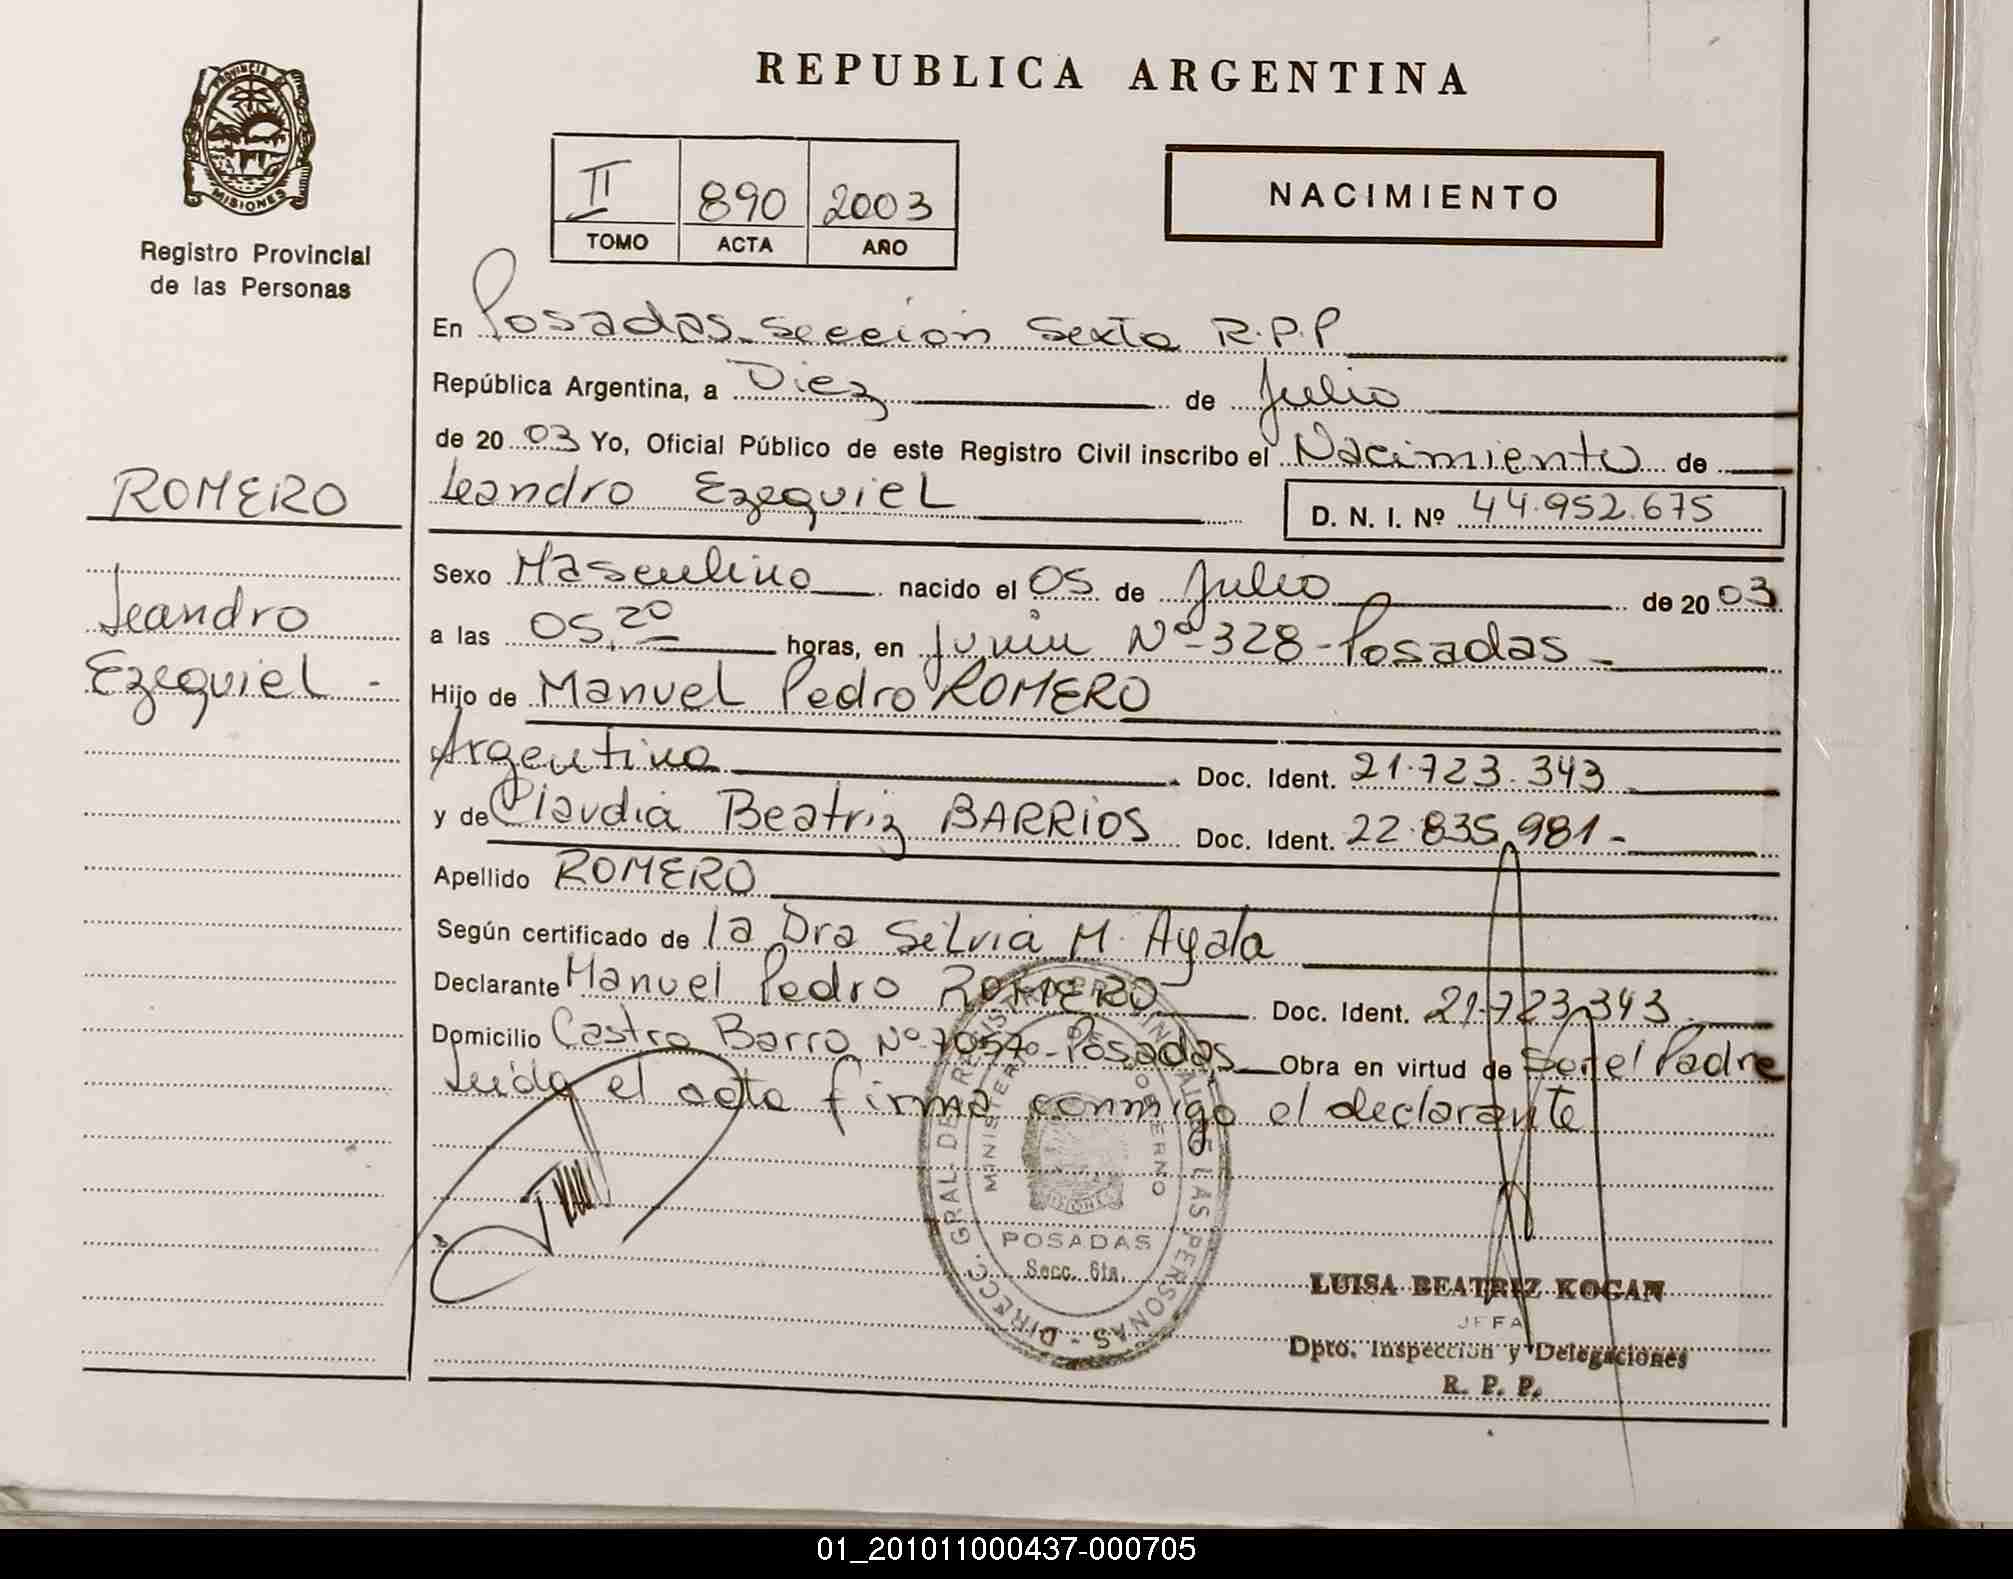 REPUBLICA ARGENTINA
PROVINCIA DE
MISIONES
Registro Provincial
de las Personas
II 890 2003
TOMO ACTA AÑO
NACIMIENTO
En Posadas Sección Sexta R.P.P
República Argentina, a Diez de Julio
de 2003 Yo, Oficial Público de este Registro Civil inscribo el Nacimiento de
ROMERO
Leandro Ezequiel D. N. I. Nº 44.952.675
Sexo Masculino nacido el 05 de Julio de 2003
Leandro
a las 05,20 horas, en Junin Nº-328-Posadas-
Ezequiel -
Hijo de Manuel Pedro ROMERO
Argentino Doc. Ident. 21.723.343
y de Claudia Beatriz BARRIOS Doc. Ident. 22.835.981-
Apellido ROMERO
Según certificado de la Dra Silvia M. Ayala
Declarante Manuel Pedro ROMERO Doc. Ident. 21.723.343
Domicilio Castro Barro Nº Posadas Obra en virtud de Ser el Padre
Leida el acta firma conmigo el declarante
DIRECC. GRAL. DE REGISTRO PROVINCIAL DE LAS PERSONAS -
MINISTERIO DE GOBIERNO
POSADAS
Secc. 6ta.
LUISA BEATRIZ KOGAN
JEFA
Dpto. Inspección y Delegaciones
R. P. P.
01_201011000437-000705